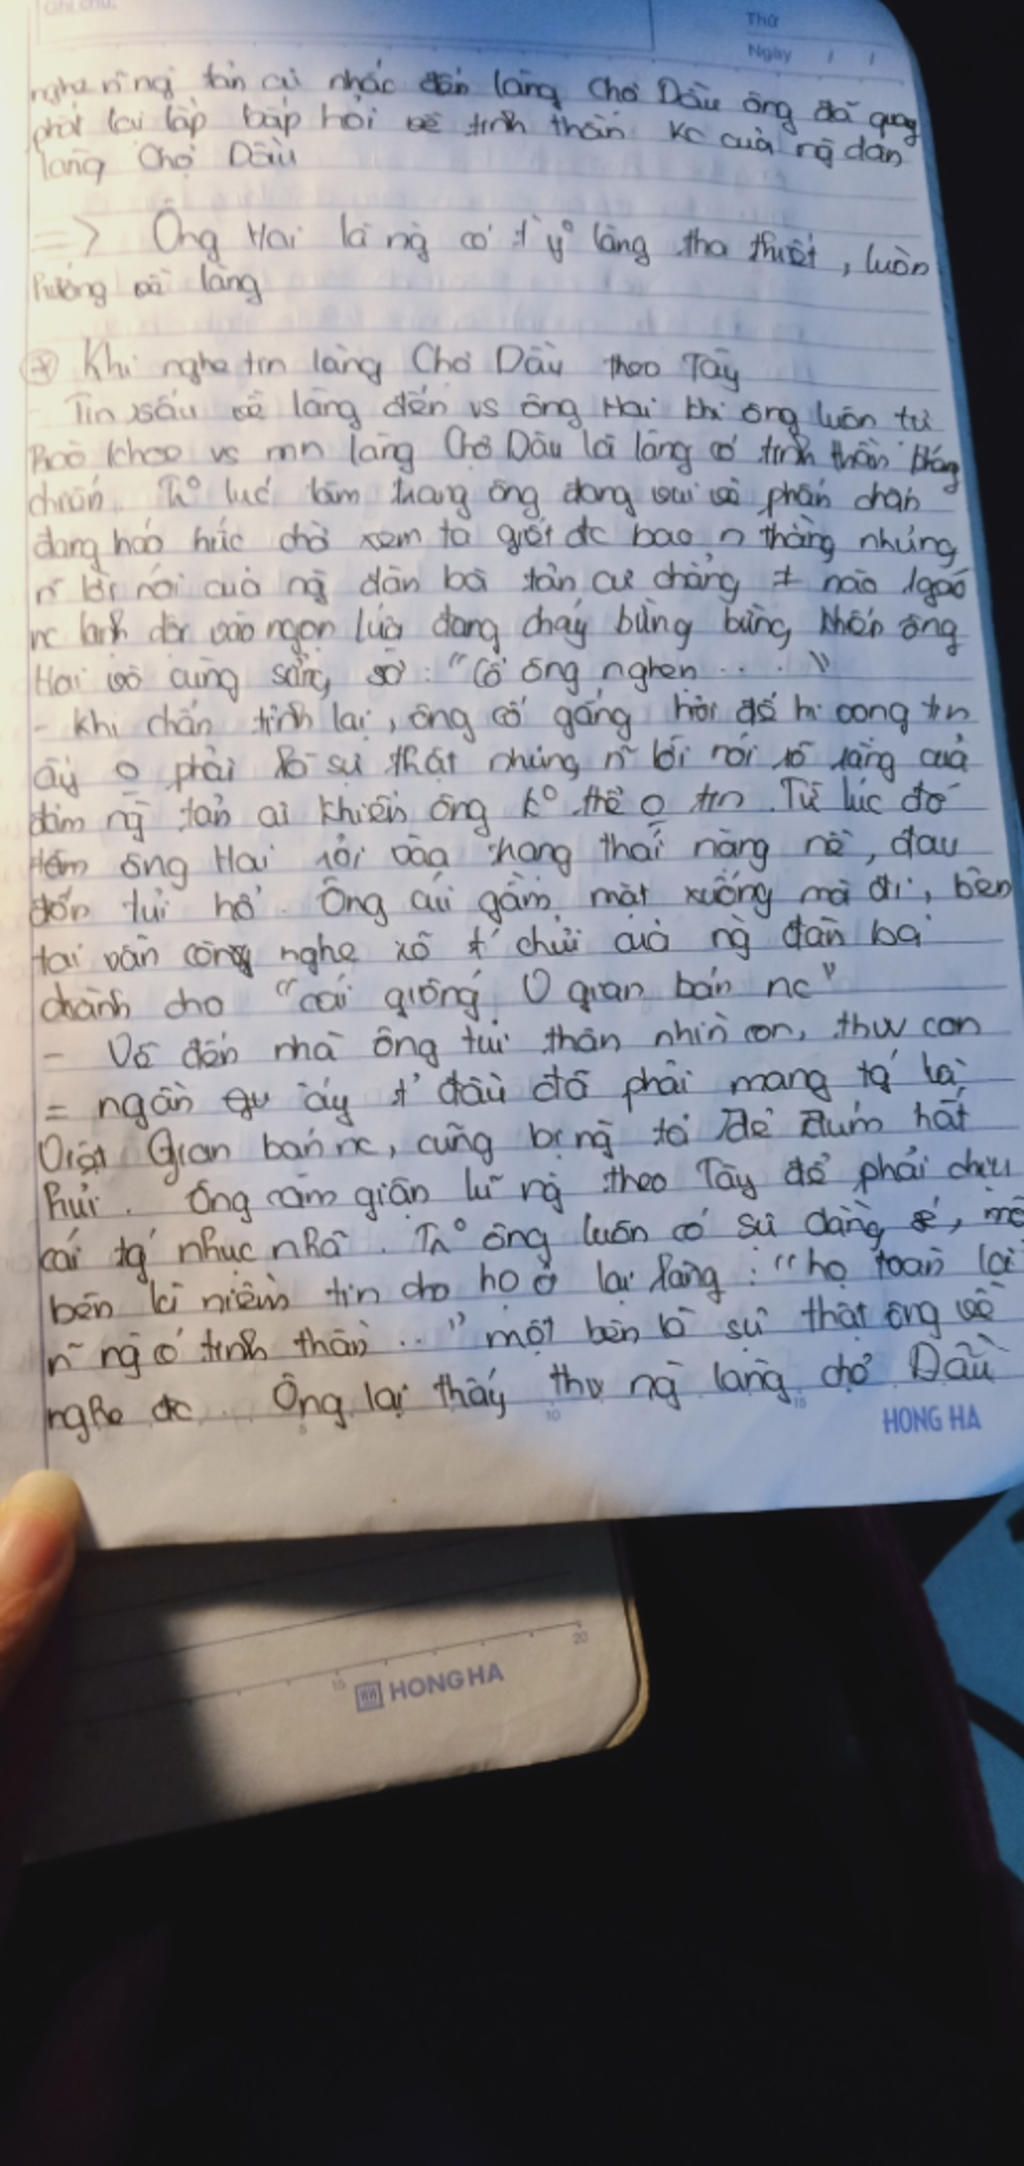 Ghi chú:
Thứ
Ngày / /
nghe n~ ng tản cư nhắc đến làng Chợ Dầu ông đã quay
phắt lại lắp bắp hỏi về tinh thần KC của ng dân
làng Chợ Dầu
=> Ông Hai là ng có t y° làng tha thiết, luôn
hướng về làng
* Khi nghe tin làng Chợ Dầu theo Tây
- Tin xấu về làng đến vs ông Hai khi ông luôn tự
hào khoe vs mn làng Chợ Dầu là làng có tinh thần kháng
chiến. Tr° lúc tâm trạng ông đang vui vẻ phấn chấn
đang háo hức chờ xem ta giết đc bao n thằng nhưng
n~ lời nói của ng đàn bà tản cư chẳng ≠ nào 1 gáo
nc lạnh dội vào ngọn lửa đang cháy bừng bừng, khiến ông
Hai vô cùng sững sờ: "Cổ ông nghẹn . . . ."
- khi chấn tĩnh lại, ông cố gắng hỏi để hi vong tin
ấy 0 phải là sự thật nhưng n~ lời nói rõ ràng của
đám ng tản cư khiến ông k° thể 0 tin. Từ lúc đó
tâm ông Hai rơi vào trang thái nặng nề, đau
đớn tủi hổ. Ông cúi gằm mặt xuống mà đi, bên
tai vẫn còn nghe rõ t' chửi của ng đàn bà
chành cho "cái giống V gian bán nc"
- Về đến nhà ông tủi thân nhìn con, thw con
= ngần ấy t' đầu đã phải mang tg' là
Việt Gian bán nc, cũng bị ng ta rẻ rúm hắt
hủi. Ông căm giận lũ ng theo Tây để phải chịu
cái tg' nhục nhã. Tr° ông luôn có sự dằng xé, một
bên là niềm tin cho họ ở lại làng : "họ toàn là
n~ ng có tinh thần ..." một bên là sự thật ông vừa
nghe đc. Ông lại thấy thw ng làng chợ Dầu
5 10 15
HONG HA
15 20
HONG HA